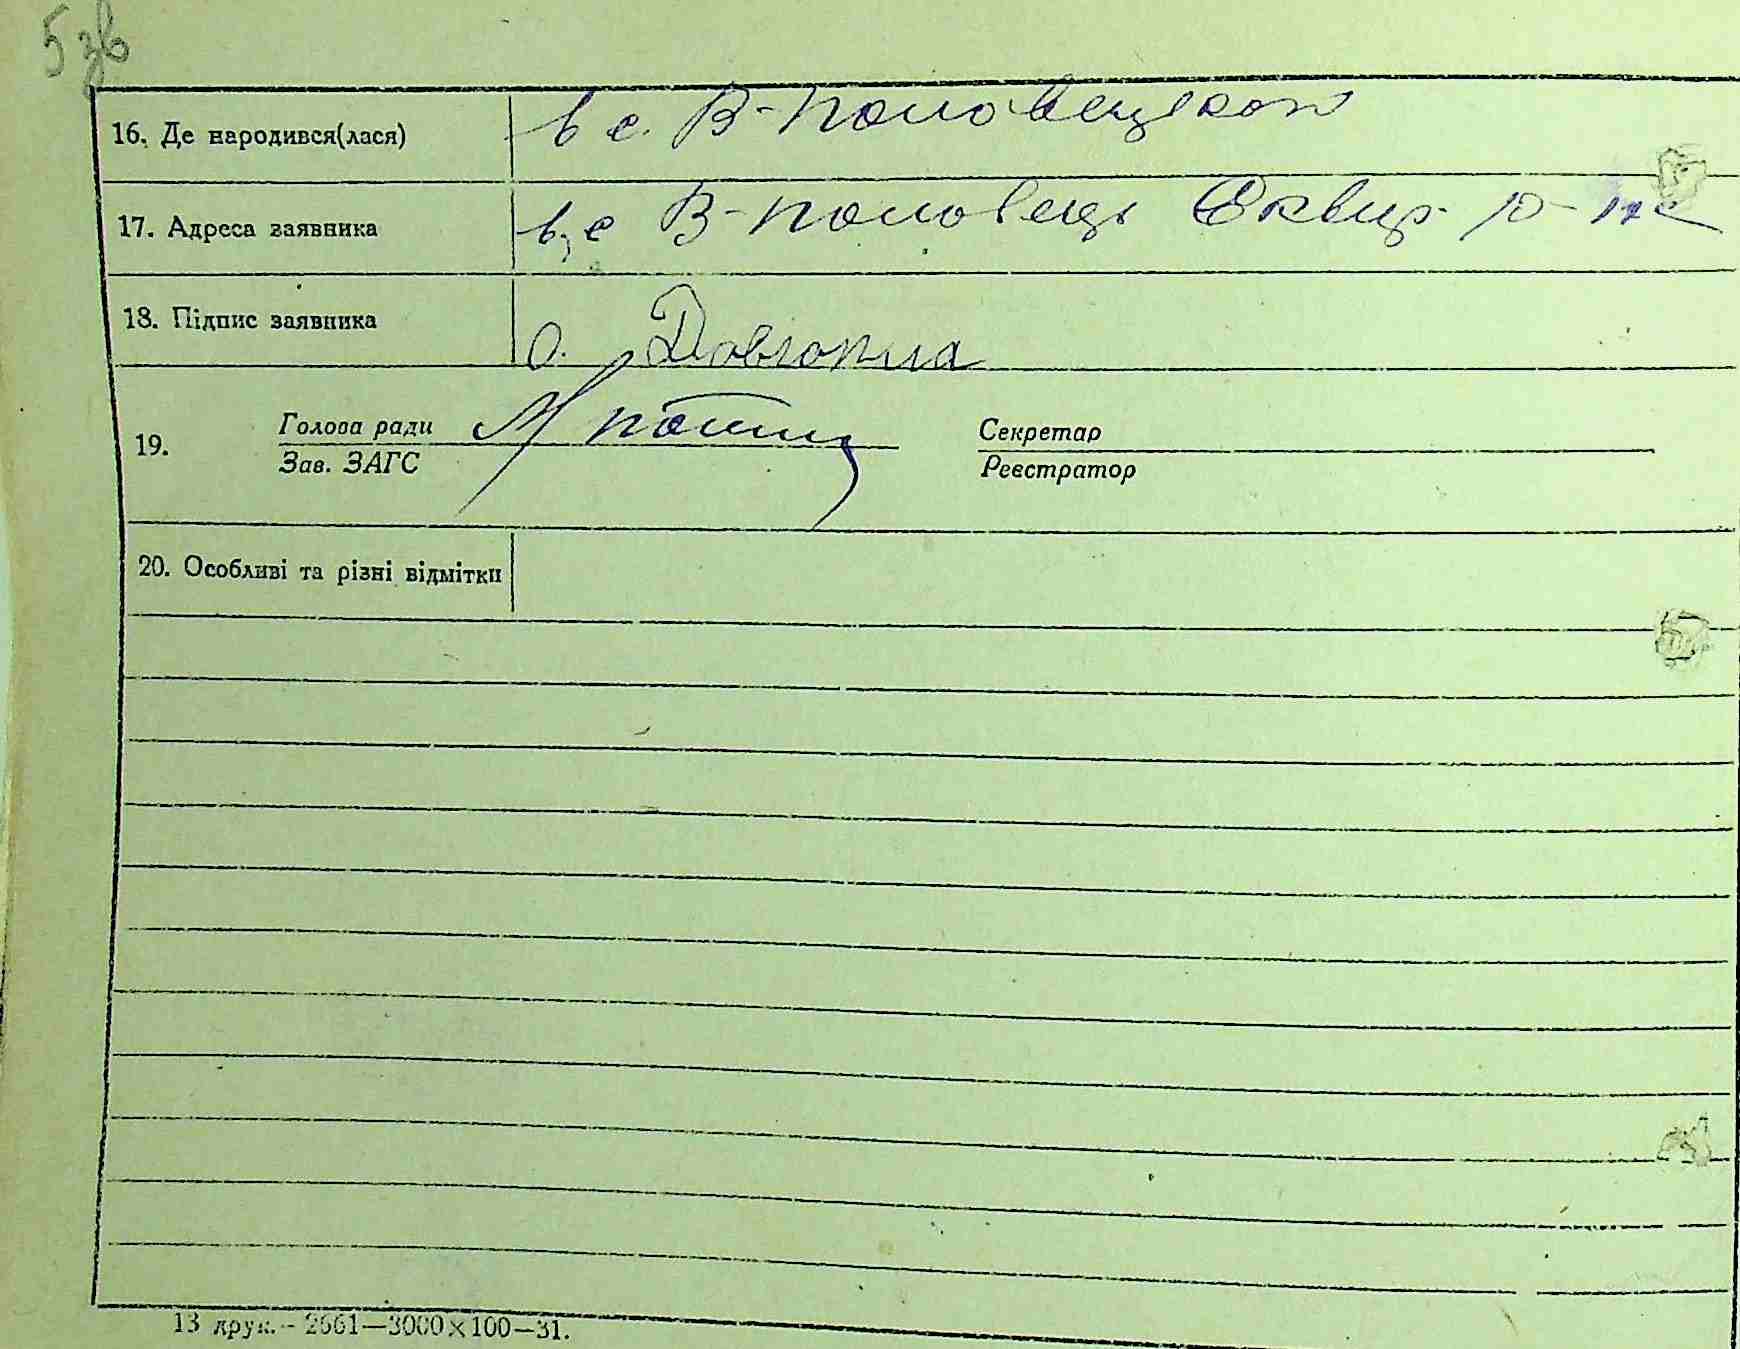 5 зв
16. Де народився(лася) в с. В-Половецком
17. Адреса заявника в с В-Половець Сквир. р-на
18. Підпис заявника О. Довгопила
19. Голова ради Секретар
Зав. ЗАГС Реєстратор
20. Особливі та різні відмітки
13 друк. - 2661—3000×100—31.